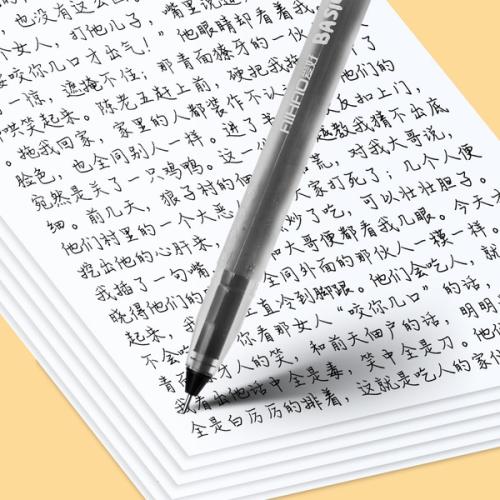 ，也没有这么凶
个女人，打他儿子，嘴里说道
要咬你几口才出气！”他眼睛却看着我
一惊，遮掩不住；那青面獠牙的一伙
哄笑起来。陈老五赶上前，硬把我拖 了
。拖我回家，家里的人都装作不认 他们的
脸色，也全同别人一样。进了书 反扣上门，
宛然是关了一只鸡鸭。这一 越教我猜不出底
细。前几天，狼子村的佃 荒，对我大哥说，
他们村里的一个大恶 大家打死了；几个人便
挖出他的心肝来， 炒了吃，可以壮壮胆子。
我插了一句嘴 和大哥便都看我几眼。今天才
晓得他们的 全同外面的那伙人一模一样。
起来， 上直冷到脚跟。他们会吃人，就
不会 你看那女人“咬你几口”的话，
青面 牙人的笑，和前天佃户的话，明明
我看出他话中全是毒，笑中全是刀。他们
全是白厉厉的排着，这就是吃人的家伙
AIHAO 爱好 BASIC